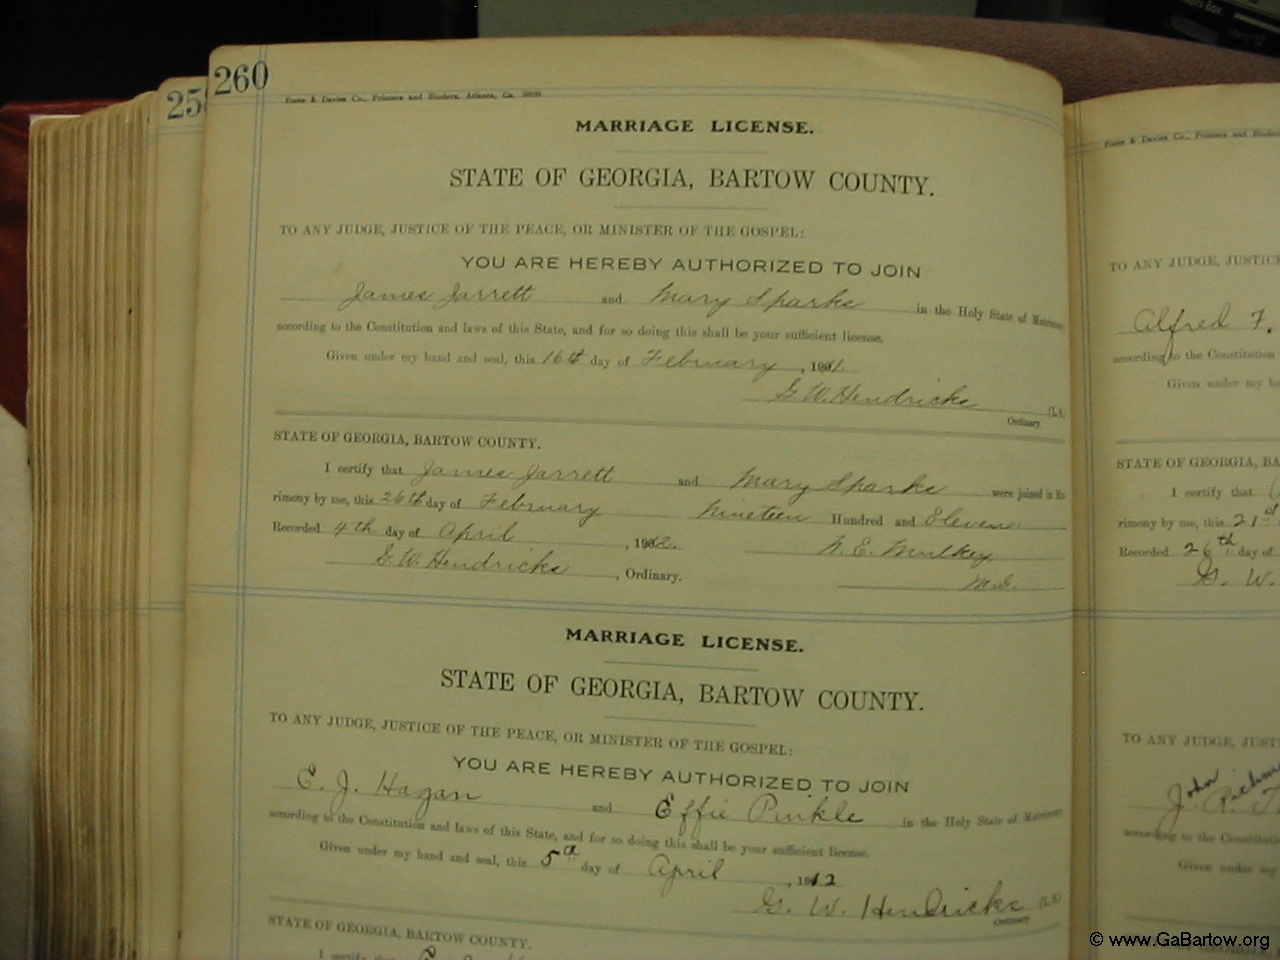 260
25
Foote & Davies Co., Printers and Binders, Atlanta, Ga.
MARRIAGE LICENSE.
STATE OF GEORGIA, BARTOW COUNTY.
TO ANY JUDGE, JUSTICE OF THE PEACE, OR MINISTER OF THE GOSPEL:
YOU ARE HEREBY AUTHORIZED TO JOIN
James Jarrett and Mary Sparks in the Holy State of Matrimony
according to the Constitution and laws of this State, and for so doing this shall be your sufficient license.
Given under my hand and seal, this 16th day of February, 1911.
G. W. Hendricks (L.S.)
Ordinary.
STATE OF GEORGIA, BARTOW COUNTY.
I certify that James Jarrett and Mary Sparks were joined in
rimony by me, this 26th day of February Nineteen Hundred and Eleven.
Recorded 4th day of April, 1912. N. E. Mulkey
G. W. Hendricks, Ordinary. M.G.
MARRIAGE LICENSE.
STATE OF GEORGIA, BARTOW COUNTY.
TO ANY JUDGE, JUSTICE OF THE PEACE, OR MINISTER OF THE GOSPEL:
YOU ARE HEREBY AUTHORIZED TO JOIN
C. J. Hagan and Effie Pinkle in the Holy State of Matrimony
according to the Constitution and laws of this State, and for so doing this shall be your sufficient license.
Given under my hand and seal, this 5th day of April, 1912
G. W. Hendricks (L.S.)
Ordinary
STATE OF GEORGIA, BARTOW COUNTY.
I certify that
Foote & Davies Co., Printers and Binders
TO ANY JUDGE, JUSTIC
Alfred F.
according to the Constitution
Given under my h
STATE OF GEORGIA, BA
I certify that
rimony by me, this 21st
Recorded 26th day of
G. W.
TO ANY JUDGE, JUST
John
according to the Constituti
Given under my
© www.GaBartow.org